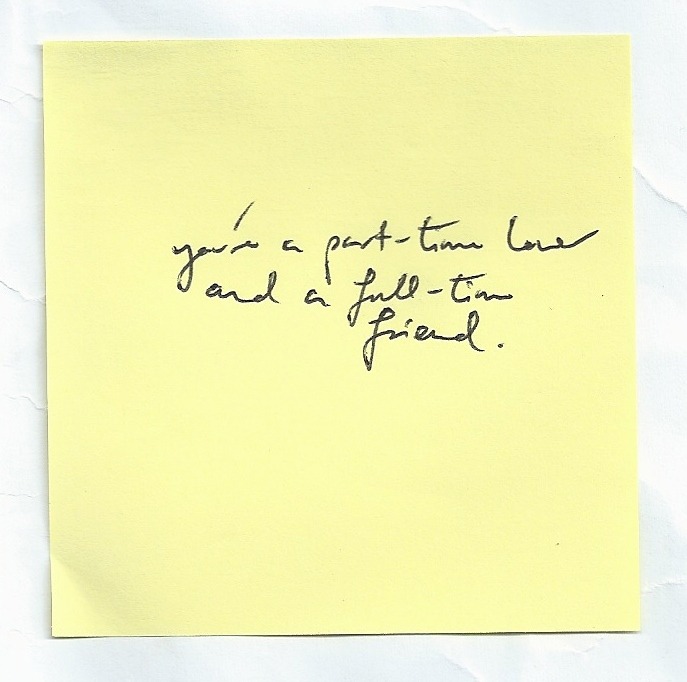 you're a part-time lover
and a full-time
friend.